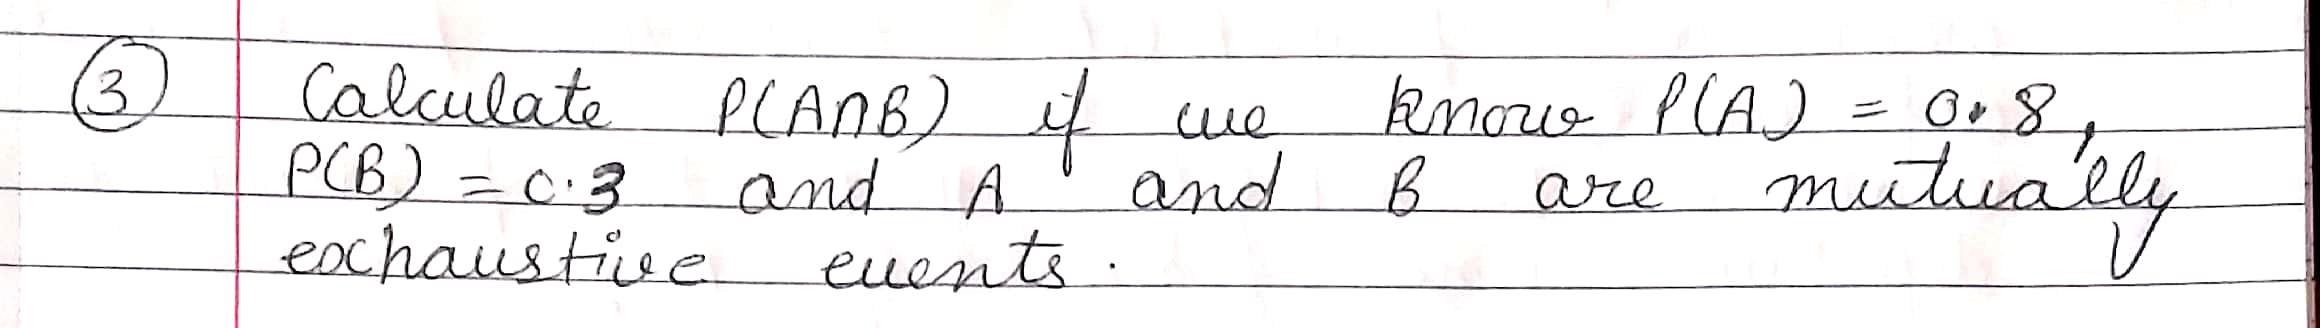 ③ Calculate P(A∩B) if we know P(A) = 0.8,
P(B) = 0.3 and A and B are mutually
exhaustive events.